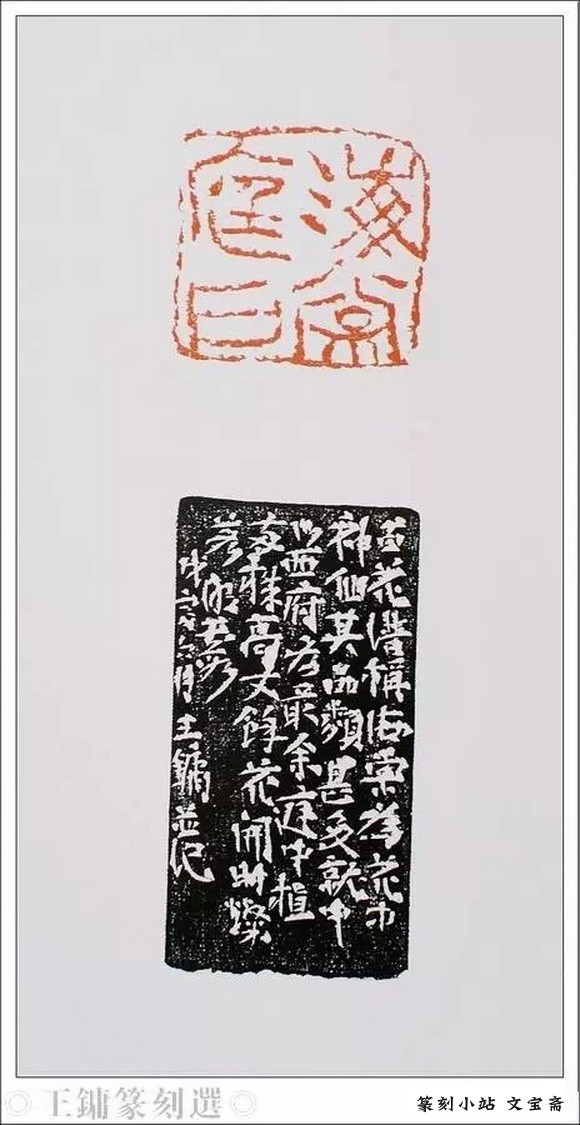 海棠
花譜稱海棠為花中
神仙其品類甚多就中
以西府為最余庭中植
株高丈餘花開時燦
若
六月王鏞並记
王鏞篆刻選
篆刻小站 文宝斋